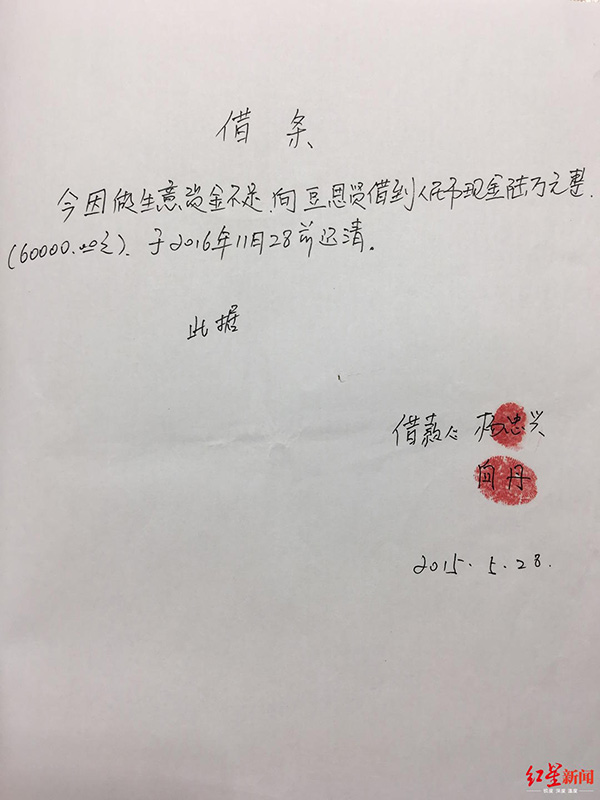 借条
今因做生意资金不足.向豆思贤借到人民币现金陆万元整.
(60000.00元). 于2016年11月28前还清.
此据
借款人 杨忠兴
向丹
2015.5.28.
红星新闻